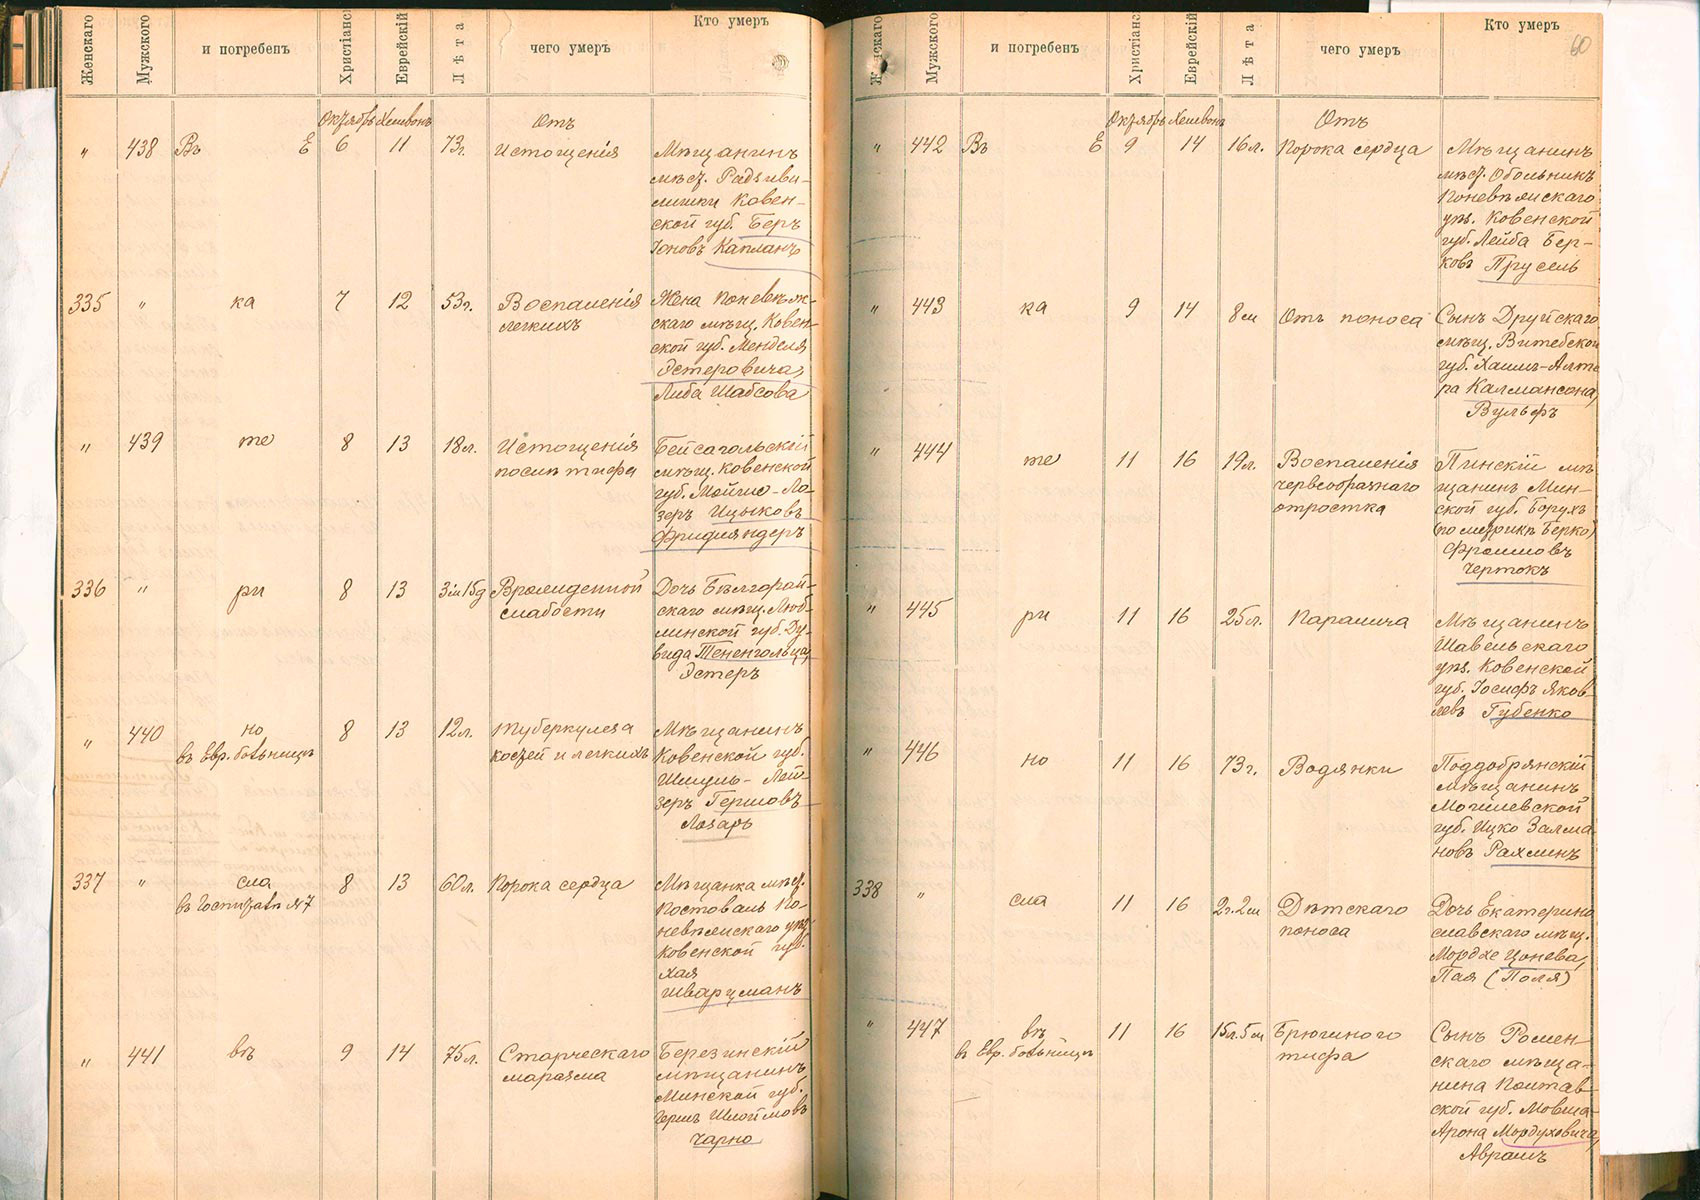 Женскаго Мужского и погребенъ Христіанс Еврейскій Лѣта чего умеръ Кто умеръ
Октябрь Хешвонъ Отъ
" 438 Въ Е 6 11 73г. Истощенія Мѣщанинъ
мѣст. Радзиви-
лишки Ковен-
ской губ. Беръ
Іоновъ Капланъ
335 " ка 7 12 53г. Воспаленія Жена Поневѣж-
легкихъ скаго мѣщ. Ковен-
ской губ. Менделя
Эстеровича,
Либа Шабсова
" 439 те 8 13 18л. Истощенія Бейсагольскій
послѣ тифа мѣщ. Ковенской
губ. Мойше-Ла-
зеръ Ицыковъ
Фридляндеръ
336 " ри 8 13 3м15д Врожденной Дочь Бѣлгорай-
слабости скаго мѣщ. Люб-
линской губ. Ду-
вида Тененгольца,
Эстеръ
" 440 но 8 13 12л. Туберкулеза Мѣщанинъ
въ Евр. больницѣ костей и легкихъ Ковенской губ.
Шмуль-Лей-
зеръ Гершовъ
Лазаръ
337 " сла 8 13 60л. Порока сердца Мѣщанка мѣст.
въ Госпиталѣ №7 Постоваль По-
невѣжскаго уѣз.
Ковенской губ.
Хая
Шварцманъ
" 441 въ 9 14 75л. Старческаго Березинскій
маразма мѣщанинъ
Минской губ.
Гершъ Шлоймовъ
Чарно
Женскаго Мужского и погребенъ Христіанс Еврейскій Лѣта чего умеръ Кто умеръ
60
Октябрь Хешвонъ Отъ
" 442 Въ Е 9 14 16л. Порока сердца Мѣщанинъ
мѣст. Обольникъ
Поневѣжскаго
уѣз. Ковенской
губ. Лейба Бер-
ковъ Прусель
" 443 ка 9 14 8м Отъ поноса Сынъ Друйскаго
мѣщ. Витебской
губ. Хаимъ-Алте
ра Калмансона,
Вульфъ
" 444 те 11 16 19л. Воспаленія Пинскій мѣ
червеобразнаго щанинъ Мин-
отростка ской губ. Борухъ
(по метрикѣ Берко)
Фроимовъ
Чертокъ
" 445 ри 11 16 25л. Паралича Мѣщанинъ
Шавельскаго
уѣз. Ковенской
губ. Іосифъ Яков
левъ Губенко
" 446 но 11 16 73г. Водянки Поддобрянскій
мѣщанинъ
Могилевской
губ. Ицко Залма
новъ Рахлинъ
338 " сла 11 16 2г.2м Дѣтскаго Дочь Екатерино
поноса славскаго мѣщ.
Мордхе Цонева,
Пая (Поля)
" 447 въ 11 16 15л.5м Брюшного Сынъ Ромен
въ Евр. больницѣ тифа скаго мѣща-
нина Полтав-
ской губ. Мовша-
Арона Мордуховича,
Аврамъ